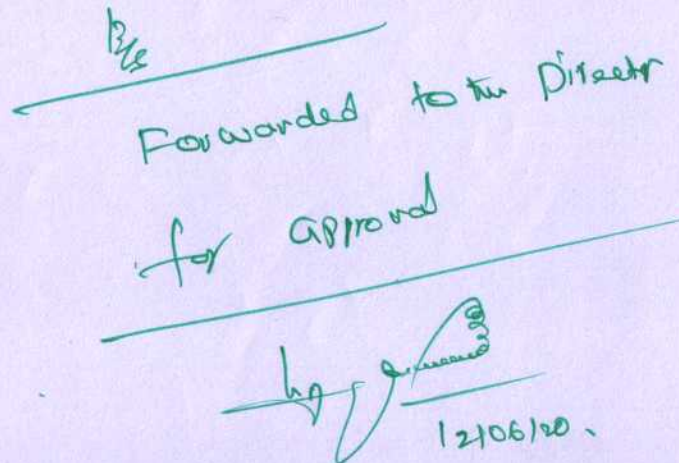 Forwarded to the Director
for approval
12/06/20.